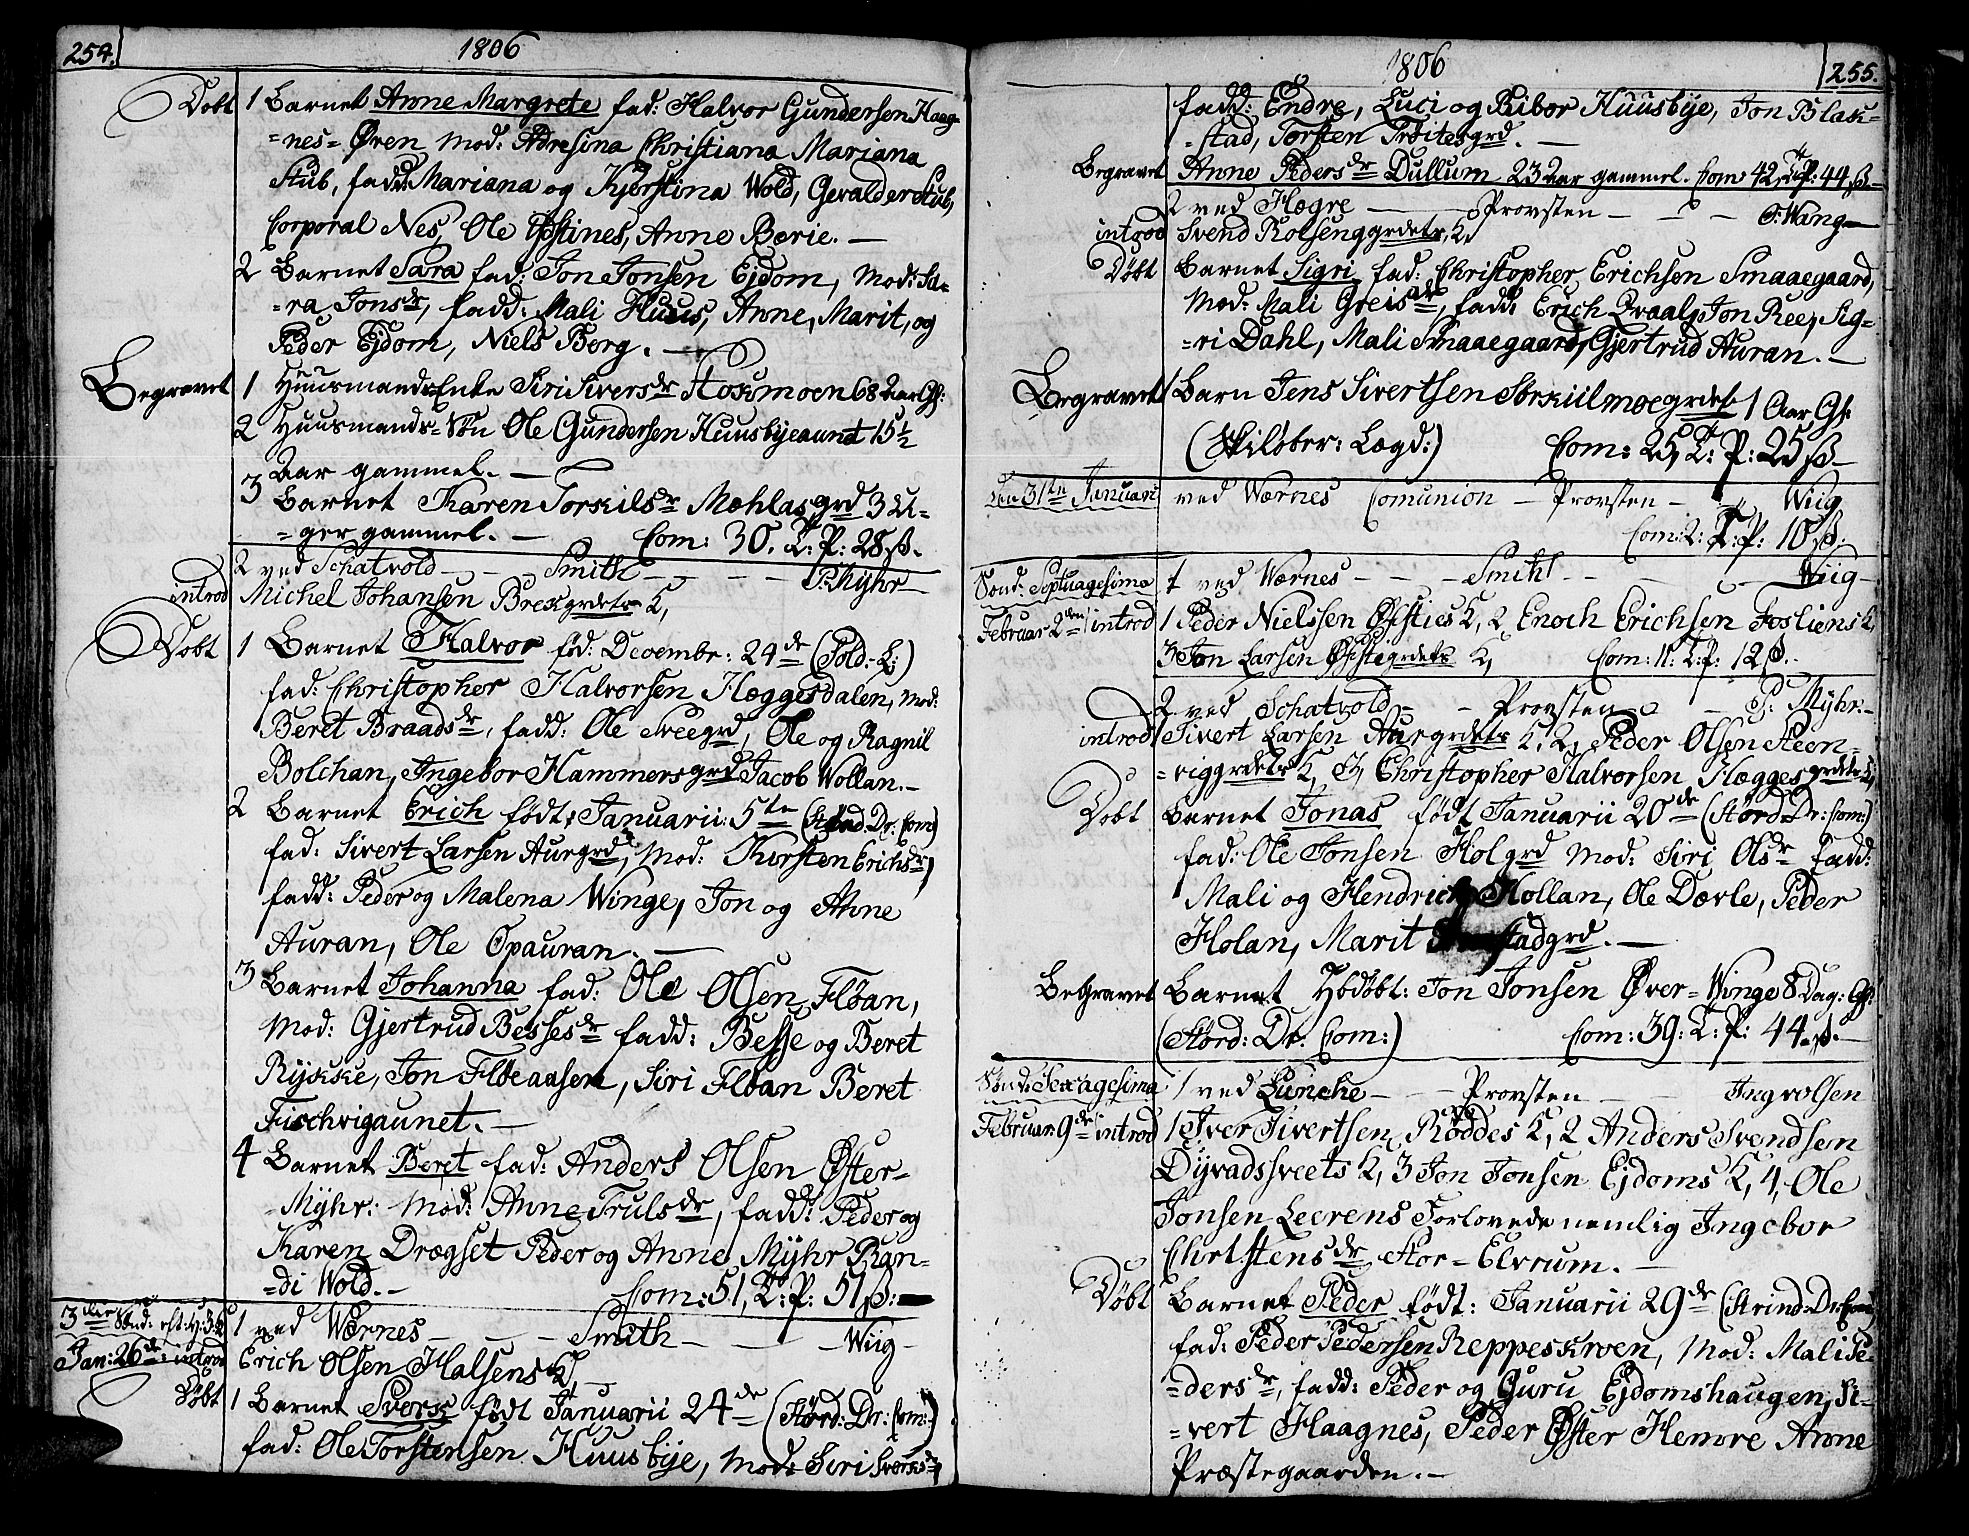 254.
1806
Døbt 1 Barnet Anne Margrete fad: Halvor Gundersen Haag-
=nes=Øren Mod: Adresina Christiana Mariana
Stub, fadd: Mariana og Kjerstina Wold, Geralder Stub,
Corporal Nes, Ole Øfstines, Anne Borie. —
2 Barnet Sara fad: Jon Jonsen Ejdom, Mod: Sa-
=ra Jonsdr, fadd: Mali Huus, Anne, Marit, og
Peder Ejdom, Niels Berg. —
Begravet 1 Huusmands Enke Siri Siversdr Hoksmoen 68 aar Gl:
2 Huusmands=Søn Ole Gundersen Huusbyeaunet 15½
Aar gammel. —
3 Barnet Karen Torkilsdr Mæhlasgrd 3 U-
=ger gammel. — Com: 30. T: P: 28 ß.
2 ved Schatvold — — Smith — — — P: Myhr —
introd Michel Johansen Brekgrdets K,
Døbt 1 Barnet Halvor fød: Decembr: 24de (Sold: L:)
fad: Christopher Halvorsen Hæggesdalen, Mod:
Beret Braadsdr, fadd: Ole Sveegrd, Ole og Ragnil
Bolchan, Ingebor Hammersgrd Jacob Wollan. —
2 Barnet Erich født: Januarii: 5te (Størd: Dr: Com)
fad: Sivert Larsen Aurgrd, Mod: Kirsten Erichsdr,
fadd: Peder og Malena Winge, Jon og Anne
Auran, Ole Opauran. —
3 Barnet Johanna fad: Ole Olsen Floan,
Mod: Gjertrud Bessesdr fadd: Besse og Beret
Rykke, Jon Floeaasen, Siri Floan Beret
Fischvigaunet. —
4 Barnet Beret fad: Anders Olsen Øfter-
Myhr: Mod: Anne Trulsdr, fadd: Peder og
Karen Drogset Peder og Anne Myhr Ran-
=di Wold. — Com: 51, T: P: 51 ß: —
3die Sønd: eft: H: 3 K: 1 ved Wærnes — — — Smith — — Wiig —
Jan: 26de introd Erich Olsen Halsens K, —
Døbt 1 Barnet Sverk født Januarii 24de (Størd: Dr: Com:)
fad: Ole Torstensen Huusbye, Mod: Siri Sverksdr
1806
255.
fadd: Endre, Luci og Ribor Huusbye, Jon Blak-
=stad, Torsten Trøitesgrd. —
Begravet Anne Pedersdr Dullum 23 aar gammel. Com 42, T: P: 44 ß —
2 ved Hægre — — Provsten — — — O: Wang —
introd Svend Rolsenggrdets K,
Døbt Barnet Sigri, fad: Christopher Erichsen Smaaegaard,
Mod: Mali Greisdr, fadd: Erich Qvaal, Jon Ree, Sig-
=ri Dahl, Mali Smaaegaard, Gjertrud Auran. —
Begravet Barn Jens Sivertsen Torkiilmoegrdet 1 Aar Gl:
(Skiløber: Lægd:) Com: 25, T: P: 25 ß —
den 31te Januari ved Wærnes Comunion — Provsten — Wiig
Com: 2: T: P: 10 ß.
Sønd: Septuagesima 1 ved Wærnes — — — Smith — — Wiig —
Februar 2den introd 1 Peder Nielssen Øfsties K, 2 Enoch Erichsen Fosliens K,
3 Jon Larsen Øfstegrdets K, Com: 11: T: P: 12 ß.
2 ved Schatvold — — Provsten — — P: Myhr —
introd Sivert Larsen Aurgrdets K, 2, Peder Olsen Steen-
=viggrdets K, 3, Christopher Halvorsen Hæggesgrdets K,
Døbt Barnet Jonas født Januarii 20de (Størd: Dr: Com:)
fad: Ole Jonsen Holgrd Mod: Siri Olsdr Fadd:
Mali og Hendrich Hollan, Ole Dærle, Peder
Holan, Marit stadgrd. —
Begravet Barnet Hbdøbt: Jon Jonsen Øver=Winge 8 Dag: Gl:
(Størd: Dr. Com:) Com: 39: T: P: 44 ß. —
Sønd: Sexagesima 1 ved Lunche — — Provsten — — Ingvolsen
Februar 9de introd 1 Iver Sivertsen Røddes K, 2 Anders Svendsen
Dyvadssveets K, 3 Jon Jonsen Ejdoms K, 4, Ole
Jonsen Leerens Forlovede nemlig Ingebor
Christensdr Stor=Elvrum. —
Døbt Barnet Peder født: Januarii 29de (Strind: Dr: Com
fad: Peder Pedersen Reppeskroen, Mod: Mali Pe-
=dersdr, fadd: Peder og Guru Ejdomshaugen, Si-
=vert Haagnes, Peder Øfster Hemre Anne
Præstegaarden. —